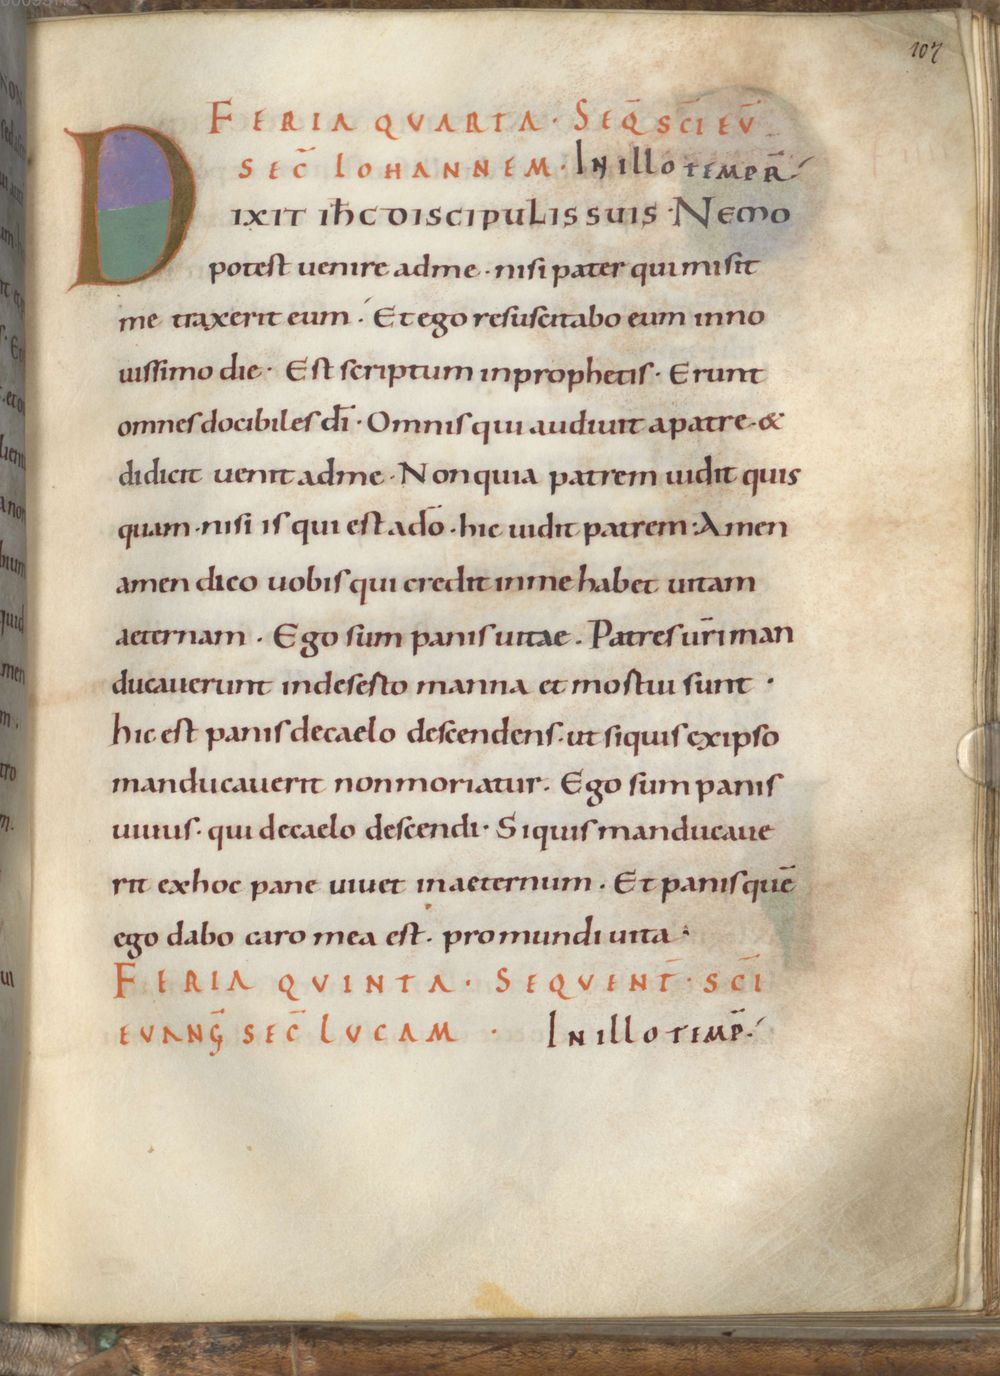 107
FERIA QVARTA · SEQ̄ SC̄I EV̄
SEC̄ IOHANNEM · IN ILLO TEMPR̄
DIXIT IH̅C DISCIPULIS SUIS · NEMO
potest uenire ad me · nisi pater qui misit
me traxerit eum · Et ego resuscitabo eum in no
uissimo die · Est scriptum in prophetis · Erunt
omnes docibiles dī · Omnis qui audiuit a patre · &
didicit uenit ad me · Non quia patrem uidit quis
quam · nisi is qui est a dō · hic uidit patrem · Amen
amen dico uobis qui credit in me habet uitam
aeternam · Ego sum panis uitae · Patres ur̄i man
ducauerunt in deserto manna et mortui sunt ·
hic est panis de caelo descendens · ut si quis ex ipso
manducauerit non moriatur · Ego sum panis
uiuus · qui de caelo descendi · Si quis manducaue
rit ex hoc pane uiuet in aeternum · Et panis quē
ego dabo caro mea est · pro mundi uita ·
FERIA QVINTA · SEQVENT̄ · SC̄I
EVANḠ SEC̄ LVCAM · IN ILLO TEMP̄